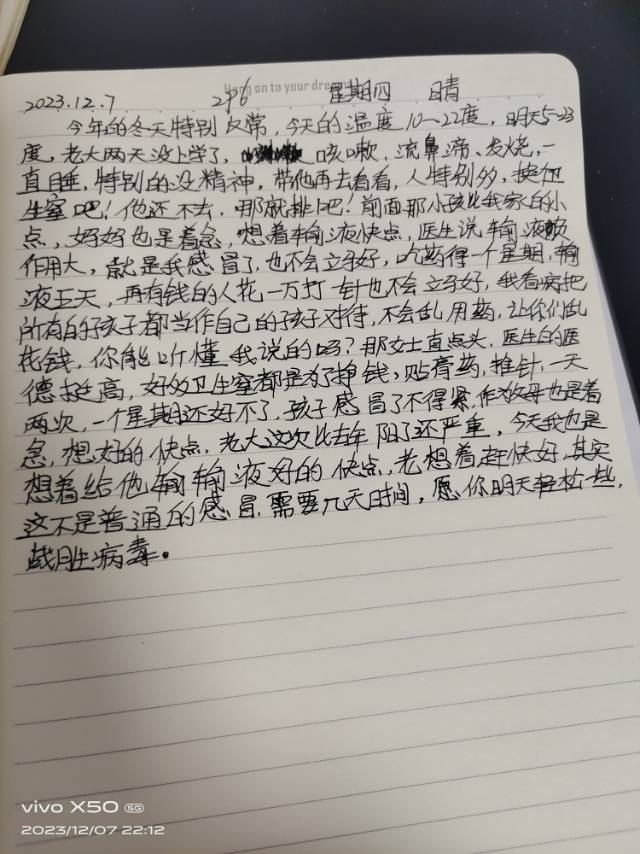 Hang on to your dre
2023.12.7 296 星期四 晴
今年的冬天特别反常,今天的温度10—22度,明天5-23
度,老大两天没上学了, 咳嗽、流鼻涕、发烧,一
直睡,特别的没精神,带他再去看看,人特别多,换
生室吧!他还不去,哪就排吧!前面那小孩比我家的小
点,妈妈也是着急,想着输液快点,医生说,输液
作用大,就是我感冒了,也不会立马好,吃药得一个星期,输
液五天,再有钱的人花一万打一针也不会立马好,我看病把
所有的孩子都当作自己的孩子对待,不会乱用药,让你们乱
花钱,你能听懂我说的吗?那女士直点头,医生的医
德挺高,好多卫生室都是为了挣钱,贴膏药,推针,一天
两次,一个星期还好不了,孩子感冒了不得紧,作为父母也是着
急,想好的快点,老大这次比去年阳了还严重,今天我也是
想着给他输输液好的快点,老想着赶快好,其实
这不是普通的感冒,需要几天时间,愿你明天轻松一些,
战胜病毒。
vivo X50 5G
2023/12/07 22:12